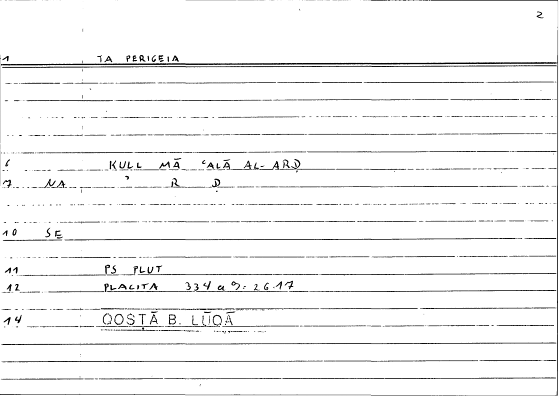 2
1 TA PERIGEIA
6 KULL MĀ ʿALĀ AL-ARḌ
7 NA ʾ R Ḍ
10 SE
11 PS PLUT
12 PLACITA 334 a 9. 26.17
14 QOSṬĀ B. LŪQĀ